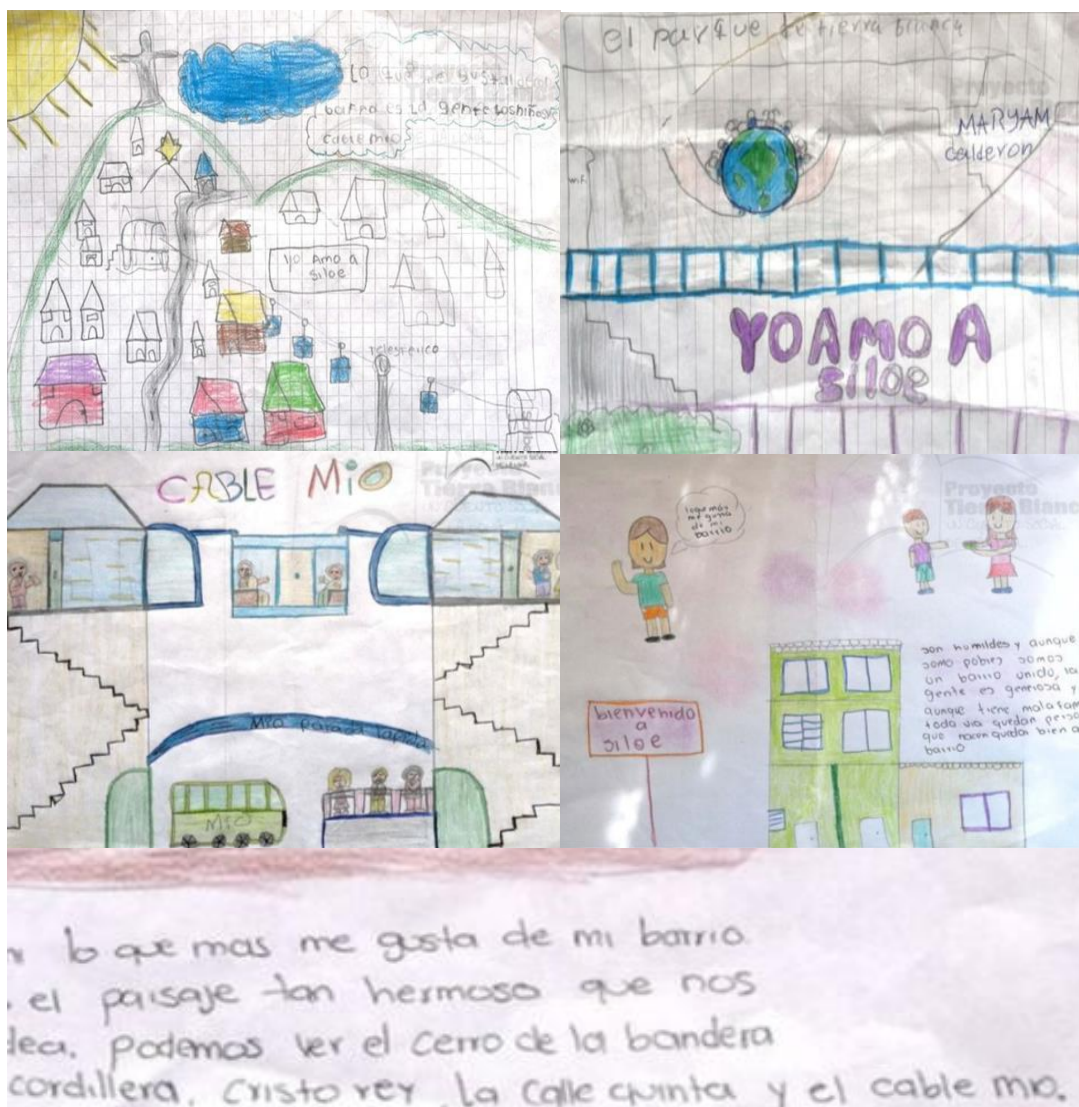 Lo que me gusta de mi
barrio es la gente los niños
cable mio
Yo Amo a
siloe
el parque de tierra blanca
Proyecto
MARYAM
calderon
YO AMO A
siloe
CABLE MiO
Mio parada
MiO
lo que más
me gusta
de mi
barrio
Proyecto
Tierra Blanc
bienvenido
a
siloe
son humildes y aunque
somo pobres somos
un barrio unido, la
gente es generosa y
aunque tiene mala fam
toda via quedan perso
que quedar bien a
barrio
lo que mas me gusta de mi barrio.
el paisaje tan hermoso que nos
dea. podemos ver el cerro de la bandera
cordillera, cristo rey, la calle quinta y el cable mio.